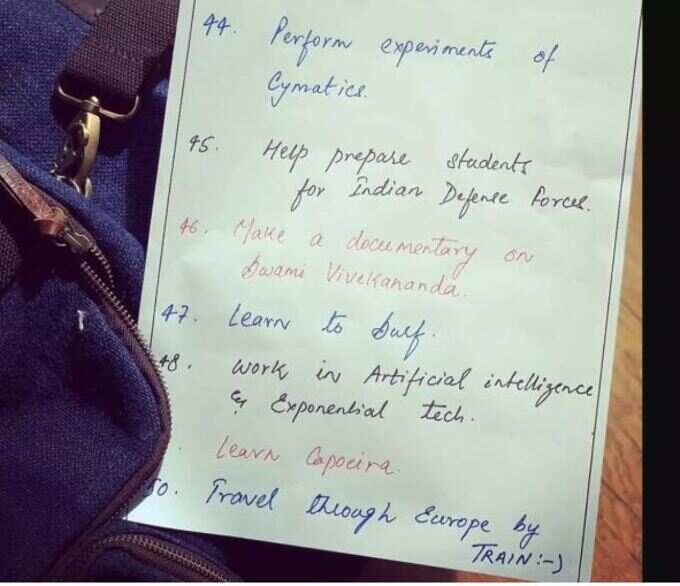 44. Perform experiments of
Cymatics.
45. Help prepare students
for Indian Defense Forces.
46. Make a documentary on
Swami Vivekananda.
47. Learn to Surf.
48. Work in Artificial intelligence
& Exponential tech.
Learn Capoeira.
50. Travel through Europe by
TRAIN :-)